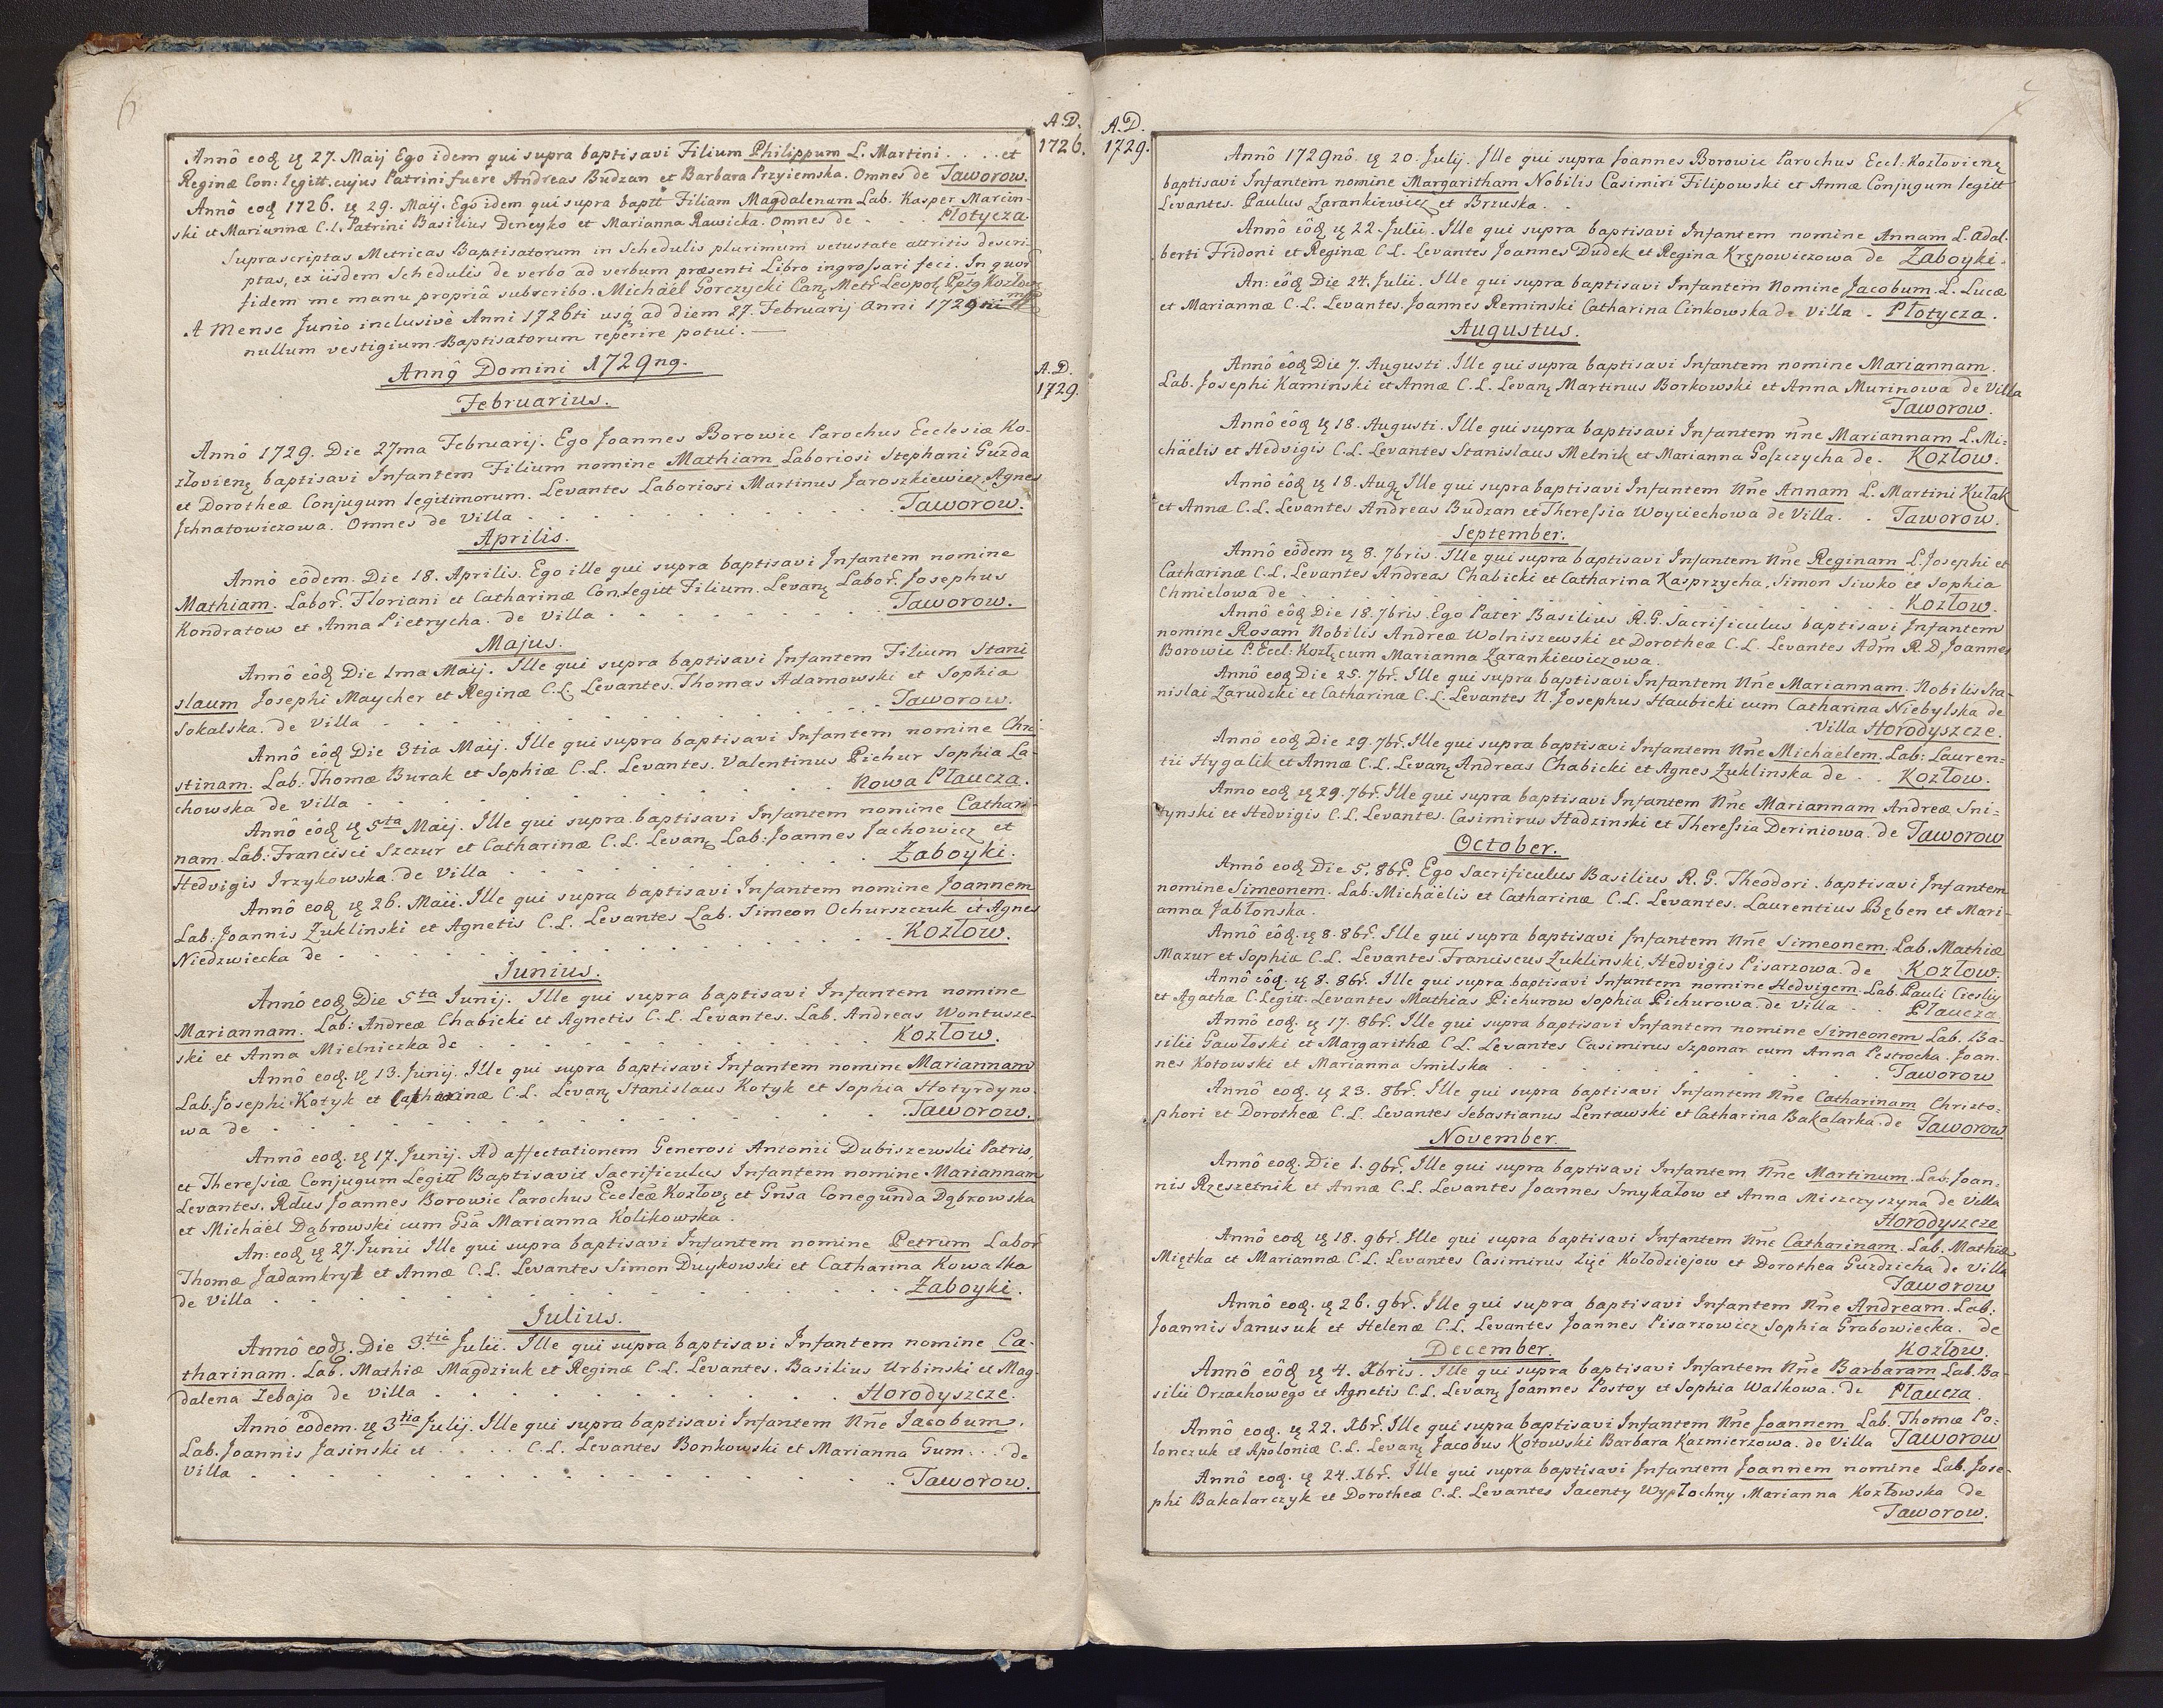 6
A.D.
1726.
Annô eod. ię 27. Maij Ego idem qui supra baptisavi Filium Philippum L. Martini . . . . et
Reginæ Con: legitt. cujus Patrini fuere Andreas Budzan et Barbara Przyiemska. Omnes de Taworow.
Annô eod. 1726. ię 29. Maij. Ego idem qui supra baptt Filiam Magdalenam Lab. Kasper Marcin-
ski et Mariannæ C.L. Patrini Basilius Deneyko et Marianna Rawicka. Omnes de . . Płotycza.
Suprascriptas Metricas Baptisatorum in Schedulis plurimum vetustate attritis descri-
ptas, ex iisdem Schedulis de verbo ad verbum præsenti Libro ingrossari feci. In quor
fidem me manu propriâ subscribo. Michäel Gorczycki Can. Metr. Leopol.
A Mense Junio inclusivè Anni 1726ti usq. ad diem 27. Februarij Anni 1729ni
nullum vestigium Baptisatorum reperire potui. —
Annô Domini 1729nô.
A.D.
1729.
Februarius.
Annô 1729. Die 27ma Februarij. Ego Joannes Borowic Parochus Ecclesiæ Ko-
złovien. baptisavi Infantem Filium nomine Mathiam Laboriosi Stephani Guzda
et Dorotheæ Conjugum legitimorum. Levantes Laboriosi Martinus Jaroszkiewicz, Agnes
Jchnatowiczowa. Omnes de Villa . . . Taworow.
Aprilis.
Annô eôdem. Die 18. Aprilis. Ego ille qui supra baptisavi Infantem nomine
Mathiam. Labor. Floriani et Catharinæ Con. legitt Filium. Levan. Labor. Josephus
Kondratow et Anna Pietrycha. de Villa . . . Taworow.
Majus.
Annô eôd. Die 1ma Maij. Ille qui supra baptisavi Infantem Filium Stani
slaum Josephi Maycher et Reginæ C.L. Levantes. Thomas Adamowski et Sophia
Sokalska. de Villa . . . Taworow.
Annô eôd. Die 3tia Maij. Ille qui supra baptisavi Infantem nomine Chri-
stinam. Lab. Thomæ Burak et Sophiæ C.L. Levantes. Valentinus Pichur Sophia La-
chowska de Villa . . . Nowa Płaucza.
Annô eôd. ię 5ta Maij. Ille qui supra baptisavi Infantem nomine Cathari-
nam. Lab: Francisci Szczur et Catharinæ C.L. Levan. Lab: Joannes Jachowicz et
Hedvigis Irzykowska. de Villa . . . Zaboyki.
Annô eod. ię 26. Maii. Ille qui supra baptisavi Infantem nomine Joannem
Lab: Joannis Zuklinski et Agnetis C.L. Levantes Lab. Simeon Ochurszczuk et Agnes
Niedzwiecka de . . . Kozłow.
Junius.
Annô eod. Die 5ta Junij. Ille qui supra baptisavi Infantem nomine
Mariannam. Lab: Andreæ Chabicki et Agnetis C.L. Levantes. Lab. Andreas Wontusze-
ski et Anna Mielniczka de . . . Kozłow.
Annô eod. ię 13. Junij. Ille qui supra baptisavi Infantem nomine Mariannam
Lab. Josephi Kotyk et Catharinæ C.L. Levan. Stanislaus Kotyk et Sophia Hotyrdyno
wa de . . . Taworow.
Annô eod. ię 17. Junij. Ad affectationem Generosi Antonii Dubiszewski Patris,
et Theressiæ Conjugum Legitt Baptisavit Sacrificulus Infantem nomine Mariannam
Levantes. Rdus Joannes Borowic Parochus Eccleæ Kozłov. et Gnsa Conegunda Dąbrowska
et Michäel Dąbrowski cum Gsa Marianna Kolikowska.
An: eod. ię 27. Junii Ille qui supra baptisavi Infantem nomine Petrum Labor
Thomæ Jadamkryk et Annæ C.L. Levantes Simon Duykowski et Catharina Kowalka
de Villa . . . Zaboyki.
Julius.
Annô eod. Die 3.tia Julii. Ille qui supra baptisavi Infantem nomine Ca-
tharinam. Lab. Mathiæ Magdziuk et Reginæ C.L. Levantes. Basilius Urbinski et Mag-
dalena Zebaja de Villa . . . Horodyszcze.
Annô eôdem. ię 3tia Julij. Ille qui supra baptisavi Infantem Nne Jacobum.
Lab. Joannis Jasinski et . . . . C.L. Levantes Bonkowski et Marianna Gum . . . de
Villa . . . Taworow.
A.D.
1729.
Annô 1729nô. ię 20. Julij. Ille qui supra Joannes Borowic Parochus Eccl: Kozłovien.
baptisavi Infantem nomine Margaritham Nobilis Casimiri Filipowski et Annæ Conjugum legitt
Levantes. Paulus Zarankiewicz et Brzuska. .
Annô eôd. ię 22. Julii. Ille qui supra baptisavi Infantem nomine Annam L. Adal-
berti Fridoni et Reginæ C.L. Levantes Joannes Dudek et Regina Krępowiczowa de Zaboyki.
An: eôd. Die 24. Julii. Ille qui supra baptisavi Infantem Nomine Jacobum. L. Lucæ
et Mariannæ C.L. Levantes. Joannes Reminski Catharina Cinkowska de Villa . Płotycza.
Augustus.
Annô eôd. Die 7. Augusti. Ille qui supra baptisavi Infantem nomine Mariannam.
Lab. Josephi Kaminski et Annæ C.L. Levan. Martinus Borkowski et Anna Murinowa de Villa
Taworow.
Annô eôd. ię 18. Augusti. Ille qui supra baptisavi Infantem nne Mariannam L. Mi-
chäelis et Hedvigis C.L. Levantes Stanislaus Melnik et Marianna Goszczycha de. Kozłow.
Annô eôd. ię 18. Aug. Ille qui supra baptisavi Infantem Nne Annam L. Martini Kułak
et Annæ C.L. Levantes Andreas Budzan et Theressia Woyciechowa de Villa. . Taworow.
September.
Annô eôdem ię 8. 7bris. Ille qui supra baptisavi Infantem Nne Reginam L. Josephi et
Catharinæ C.L. Levantes Andreas Chabicki et Catharina Kasprzycha, Simon Siwko et Sophia
Chmielowa de . . . Kozłow.
Annô eôd. Die 18. 7bris. Ego Pater Basilius R.G. Sacrificulus baptisavi Infantem
nomine Rosam Nobilis Andreæ Wolniszewski et Dorotheæ C.L. Levantes Adm R.D. Joannes
Borowic P. Eccl: Kozł. cum Marianna Zarankiewiczowa.
Annô eod. Die 25. 7br. Ille qui supra baptisavi Infantem Nne Mariannam. Nobilis Sta-
nislai Zarudzki et Catharinæ C.L. Levantes N. Josephus Haubicki cum Catharina Niebylska de
Villa Horodyszcze.
Annô eod. Die 29. 7br. Ille qui supra baptisavi Infantem Nne Michaelem. Lab: Lauren-
tii Hygalik et Annæ C.L. Levan. Andreas Chabicki et Agnes Zuklinska de . . Kozłow.
Anno eod. ię 29. 7br. Ille qui supra baptisavi Infantem Nne Mariannam Andreæ Sni-
tynski et Hedvigis C.L. Levantes. Casimirus Hadzinski et Theressia Deriniowa. de Taworow
October.
Annô eod. Die 5. 8br. Ego Sacrificulus Basilius R.G. Theodori. baptisavi Infantem
nomine Simeonem. Lab: Michäelis et Catharinæ C.L. Levantes. Laurentius Bęben et Mari-
anna Jabłonska.
Annô eôd. ię 8. 8br. Ille qui supra baptisavi Infantem Nne Simeonem. Lab. Mathiæ
Mazur et Sophiæ C.L. Levantes. Franciscus Zuklinski, Hedvigis Pisarzowa. de Kozłow.
Annô eôd. ię 8. 8br. Ille qui supra baptisavi Infantem nomine Hedvigem. Lab. Pauli Ciesliy
et Agathæ C. Legitt. Levantes Mathias Pichurow Sophia Pichurowa. de Villa . . Płaucza.
Annô eod. ię 17. 8br. Ille qui supra baptisavi Infantem nomine Simeonem Lab. Ba-
silii Gawłoski et Margarithæ C.L. Levantes Casimirus Szponar cum Anna Pestrocka. Joan-
nes Kotowski et Marianna Smilska . . . Taworow
Annô eod. ię 23. 8br. Ille qui supra baptisavi Infantem Nne Catharinam Christo-
phori et Dorotheæ C.L. Levantes Sebastianus Lentawski et Catharina Bakalarka. de Taworow
November.
Annô eod. Die 1. 9br. Ille qui supra baptisavi Infantem Nne Martinum. Lab. Joan-
nis Rzeszetnik et Annæ C.L. Levantes Joannes Smykałow et Anna Miszczyszyna de Villa
Horodyszcze
Annô eod. ię 18. 9br. Ille qui supra baptisavi Infantem Nne Catharinam. Lab. Mathiæ
Miętka et Mariannæ C.L. Levantes Casimirus Kołodziejow et Dorothea Guzdzicha de Villa
Taworow
Annô eod. ię 26. 9br. Ille qui supra baptisavi Infantem Nne Andream. Lab:
Joannis Janusuk et Helenæ C.L. Levantes Joannes Pisarzowicz, Sophia Grabowiecka. de
Kozłow.
December.
Annô eôd. ię 4. Xbris. Ille qui supra baptisavi Infantem Nne Barbaram Lab. Ba-
silii Orzachowego et Agnetis C.L. Levan. Joannes Postoy et Sophia Walkowa. de Płaucza.
Annô eod. ię 22. Xbr. Ille qui supra baptisavi Infantem Nne Joannem Lab. Thomæ Po-
lonczuk et Apoloniæ C.L. Levan. Jacobus Kotowski Barbara Kazmierzowa. de Villa Taworow
Annô eod. ię 24. Xbr. Ille qui supra baptisavi Infantem Joannem nomine Lab. Jose-
phi Bakalarczyk et Dorotheæ C.L. Levantes Jacenty Wypłochny, Marianna Kozłowska de
Taworow.